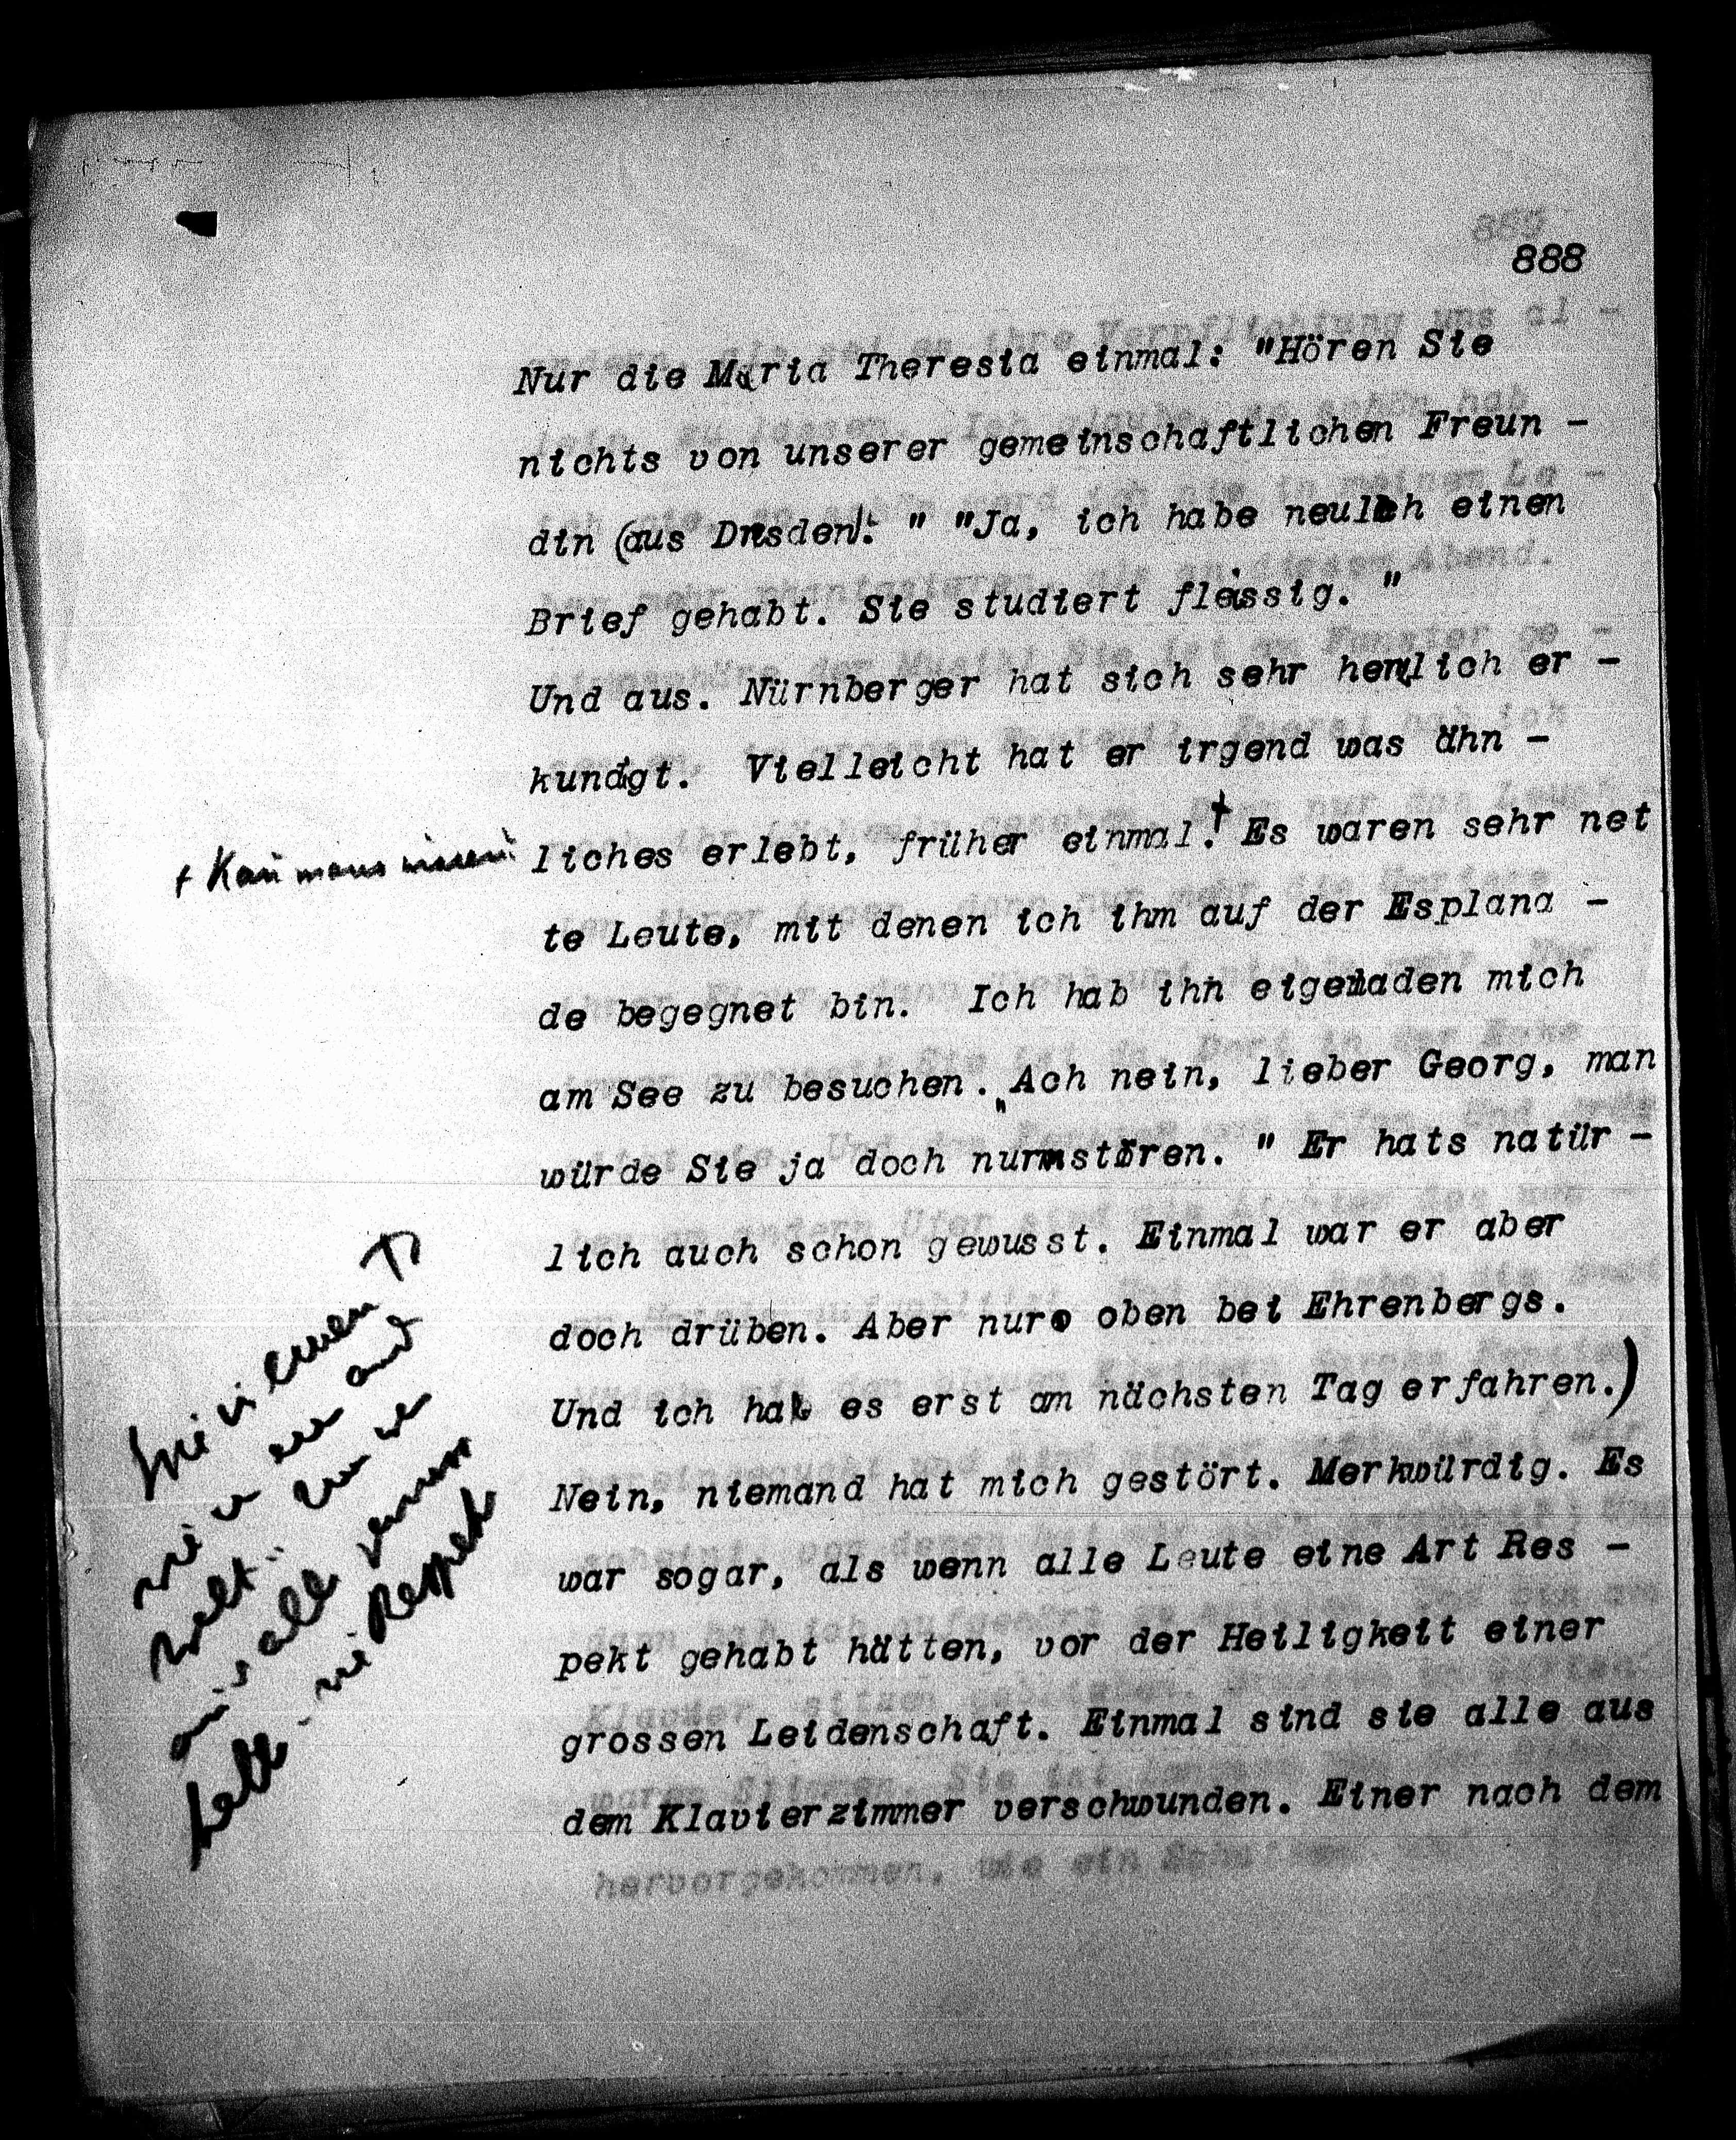 888
Nur die Maria Theresia einmal: "Hören Sie
nichts von unserer gemeinschaftlichen Freun -
din (aus Dresden). " "Ja, ich habe neulich einen
Brief gehabt. Sie studiert fleissig. "
Und aus. Nürnberger hat sich sehr herzlich er -
kundigt. Vielleicht hat er irgend was ähn -
liches erlebt, früher einmal.† Es waren sehr net
te Leute, mit denen ich ihm auf der Esplana -
de begegnet bin. Ich hab ihn eigeladen mich
am See zu besuchen. „Ach nein, lieber Georg, man
würde Sie ja doch nur stören. " Er hats natür -
lich auch schon gewusst. Einmal war er aber
doch drüben. Aber nur oben bei Ehrenbergs.
Und ich hab es erst am nächsten Tag erfahren.)
Nein, niemand hat mich gestört. Merkwürdig. Es
war sogar, als wenn alle Leute eine Art Res -
pekt gehabt hätten, vor der Heiligkeit einer
grossen Leidenschaft. Einmal sind sie alle aus
dem Klavierzimmer verschwunden. Einer nach dem